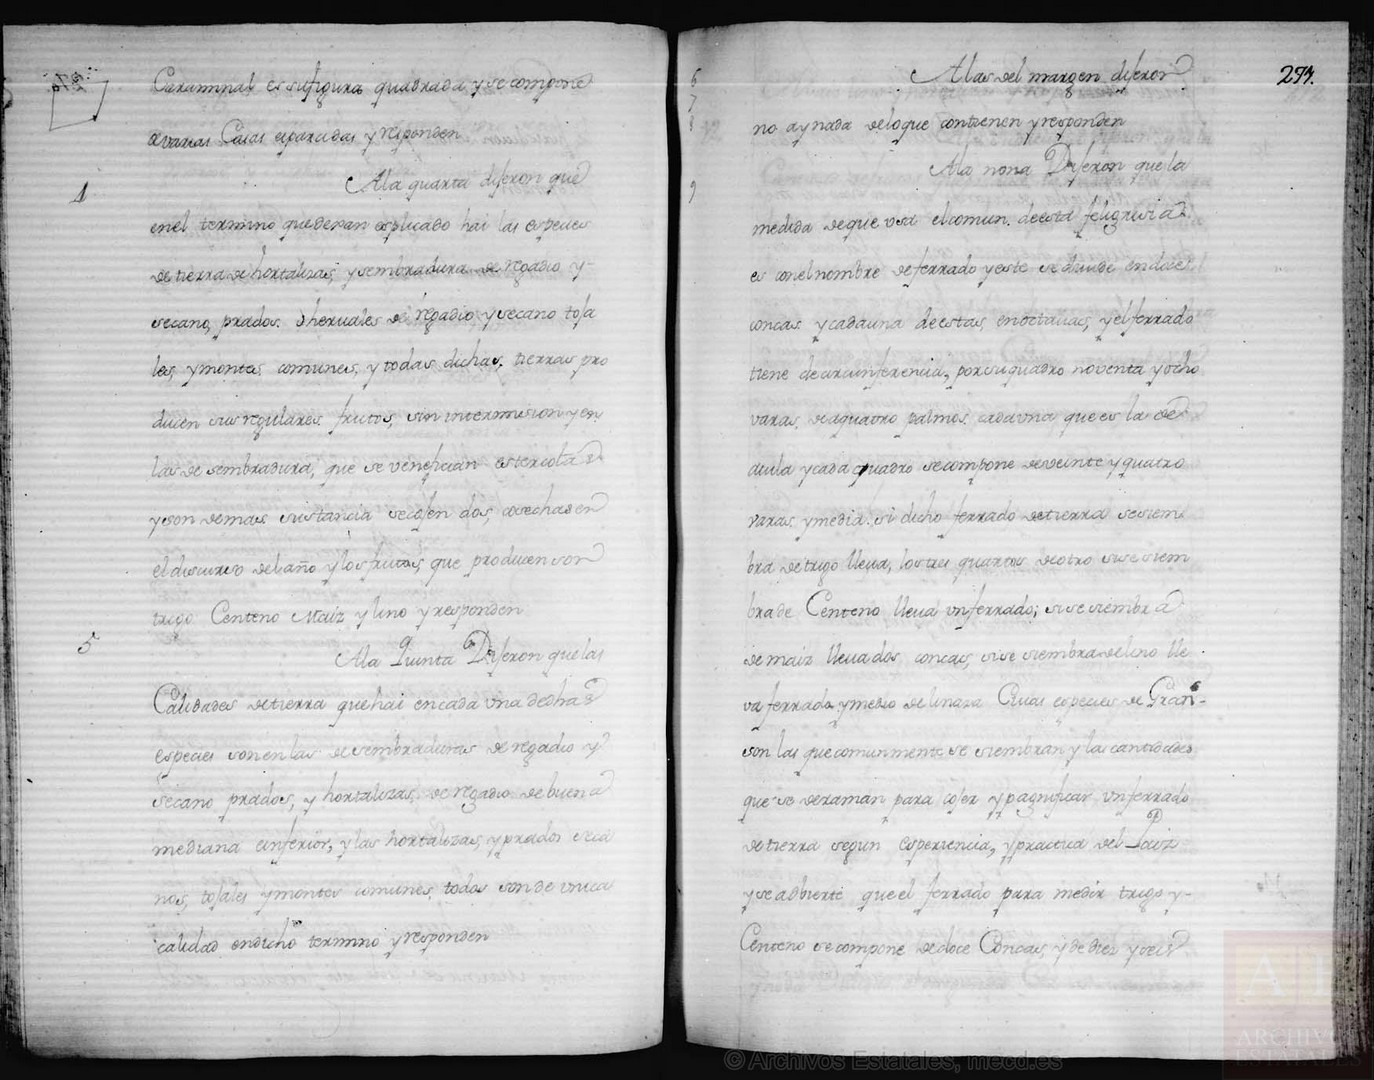 Caraminal es su figura quadrada y se compone
de varias Casas esparcidas y responden
4
A la quarta dijeron que
en el termino que dexan esplicado hai las especies
de tierra de hortalizas, y sembradura de regadio y
secano, prados dhervales de regadio y secano toja
les, y montes comunes, y todas dichas tierras pro
ducen sus regulares frutos, sin intermision y en
las de sembradura, que se venefician estercola
y son de mas sustancia se cojen dos, cosechas en
el discurso del año y los frutos, que producen son
trigo Centeno Maiz y lino y responden
5
A la Quinta Dijeron que las
Calidades de tierra que hai en cada una de dhas
especies son en las de sembraduras de regadio y
secano prados, y hortalizas, de regadio de buena
mediana e inferior, y las hortalizas, y prados seca
nos, tojales y montes comunes, todos son de unica
calidad en dicho termino y responden
294.
6
7
8
A las del margen dijeron
no ay nada de lo que contienen y responden
9
A la nona Dijeron que la
medida de que usa el comun de esta feligresia
es con el nombre de ferrado y este se divide en doce
concas y cada una de estas, en octavas, y el ferrado
tiene de circunferencia, por su quadro noventa y ocho
varas de a quatro palmos cada una que es la de
duila y cada quadro se compone de veinte y quatro
varas y media si dicho ferrado de tierra se siem
bra de trigo lleva, los tres quartos de otro si se siem
bra de Centeno lleva un ferrado; si se siembra
de maiz lleva dos concas, si se siembra de lino lle
va ferrado y medio de linaza Cuias especies de Gran
son las que comunmente se siembran y las cantidades
que se deraman para cojer y pagnificar un ferrado
de tierra segun esperiencia, y practica del Paiz
y se adbierte que el ferrado para medir trigo y
Centeno se compone de doce Concas, y de diez y seis
© Archivos Estatales, mecd.es
ARCHIVOS
ESTATALES